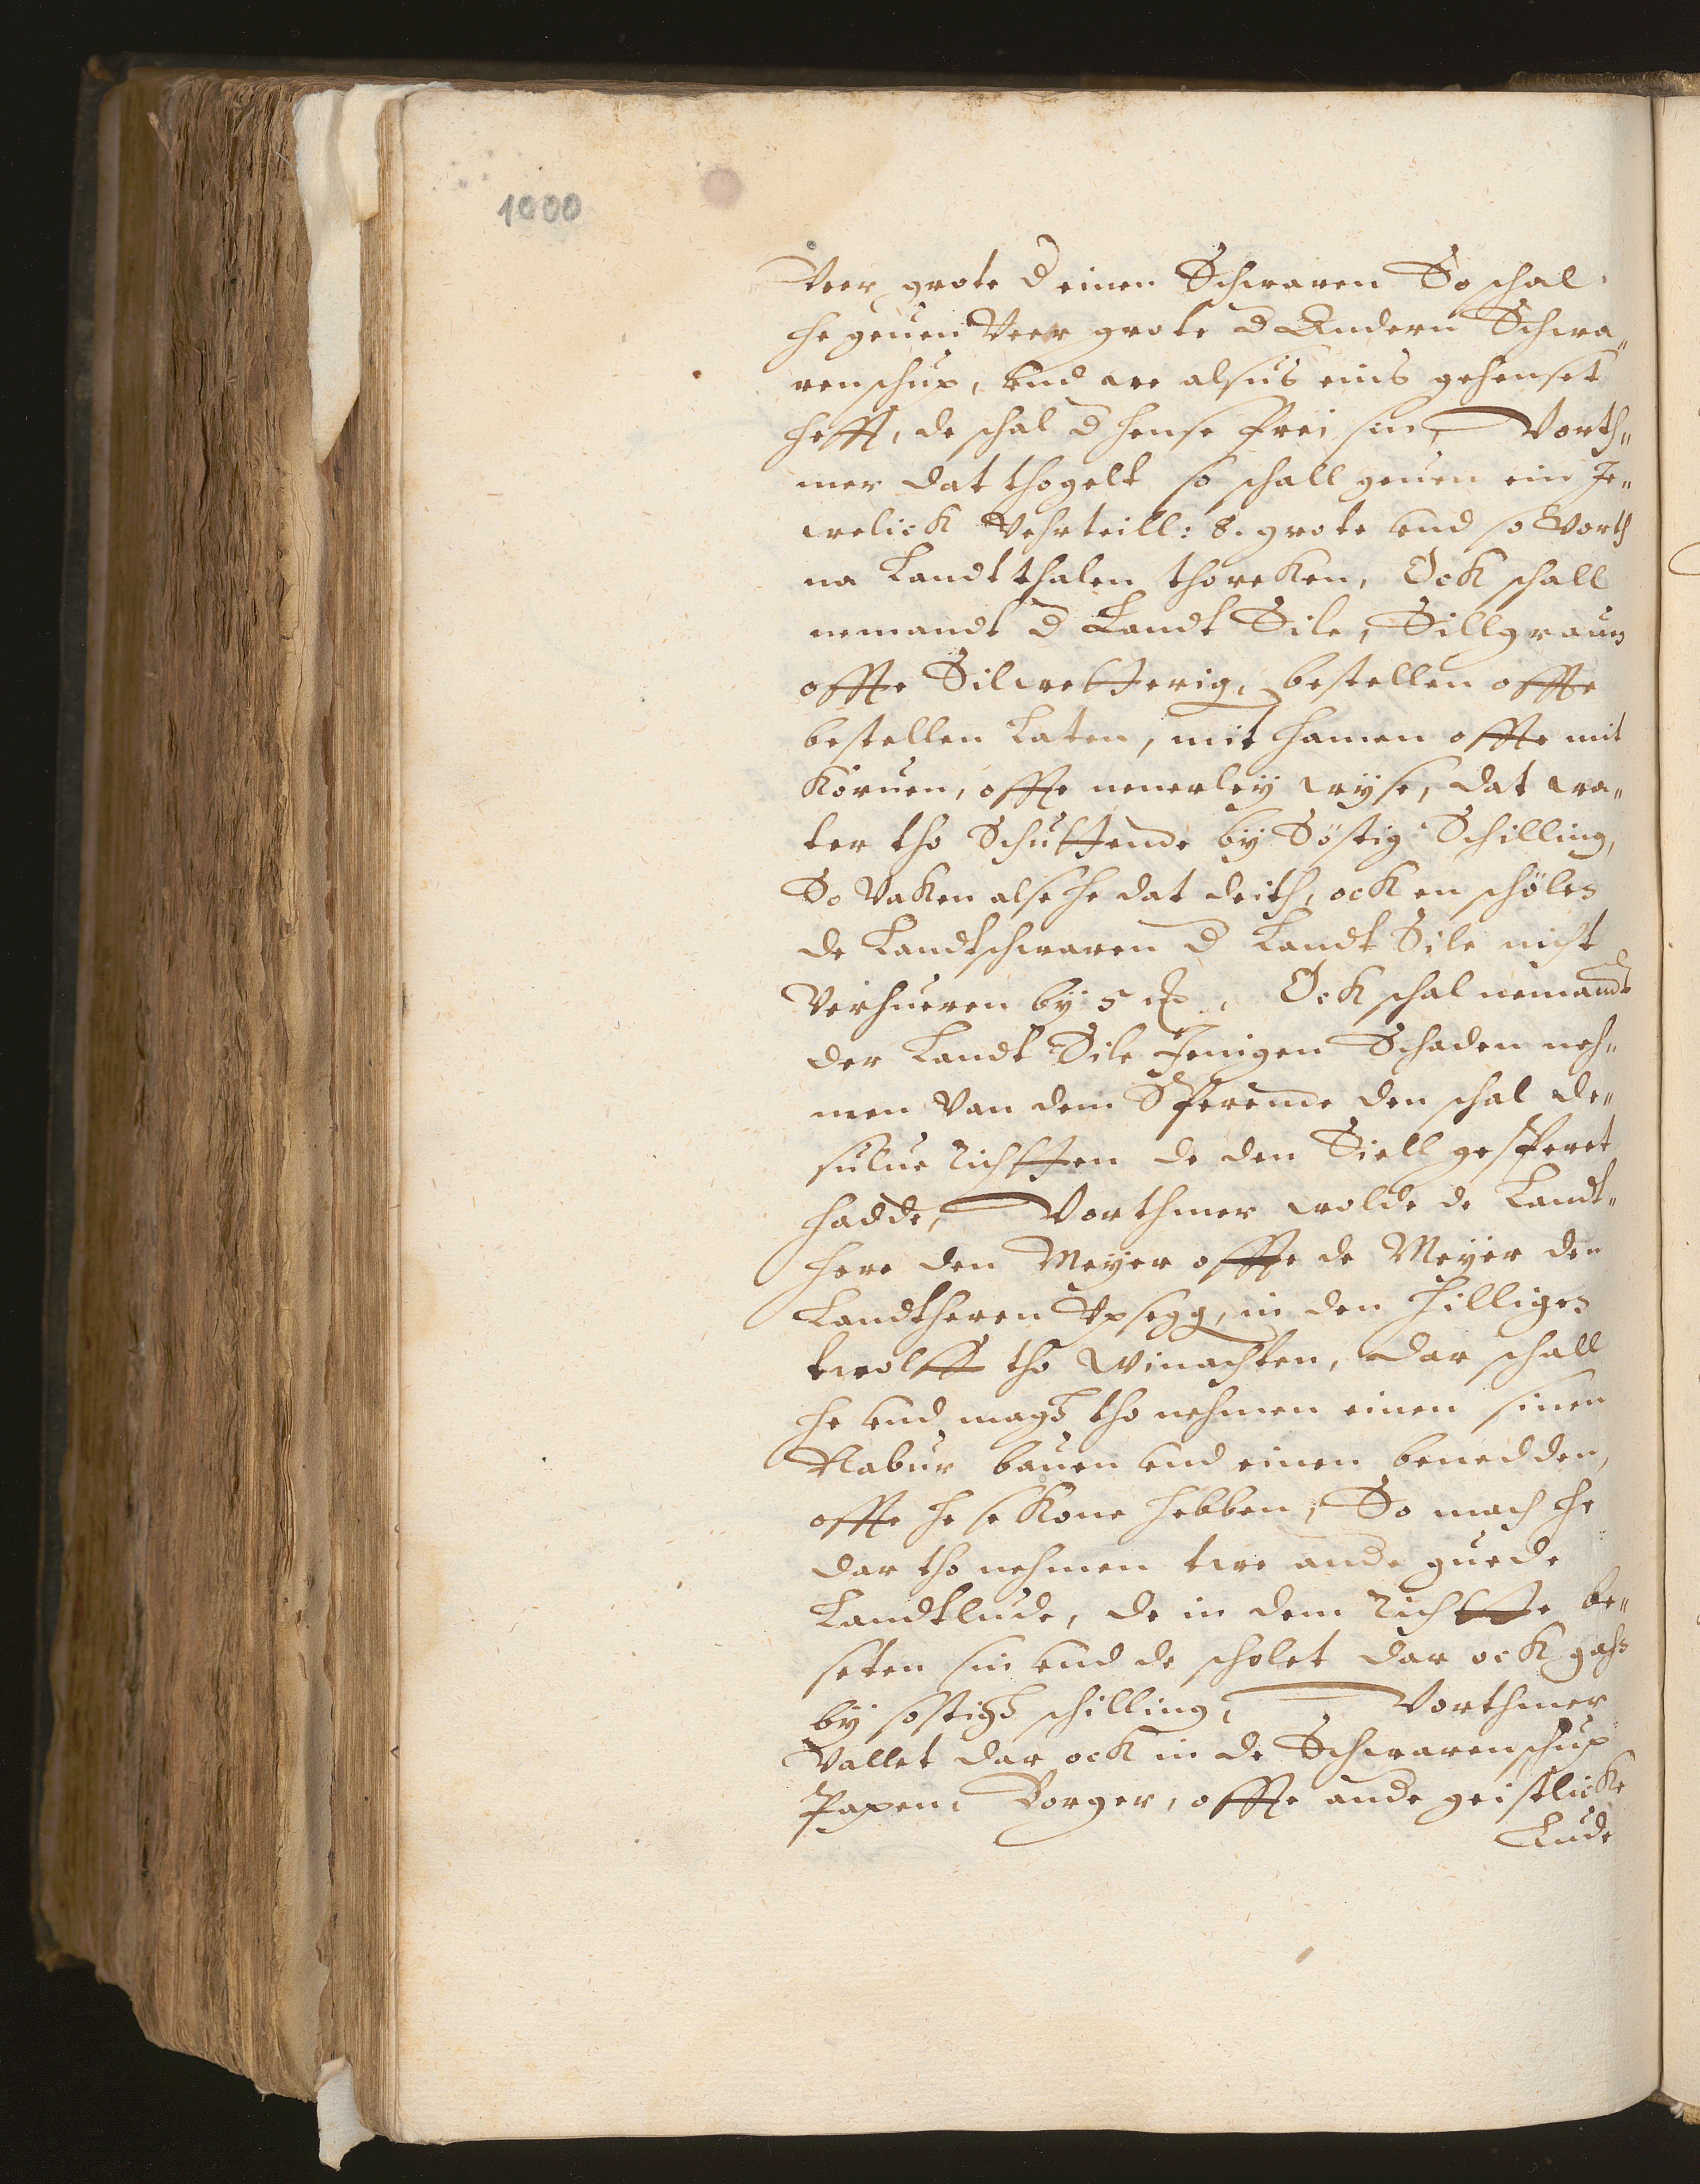 1000
Veer grote d einen Schwaren So schal
he geuen Veer grote d Andern Schwa„
renschup, vnd we alsus eins gehenset
hefft, de schal d hense frei sin, Vorth„
mer dat thogelt so schall geuen ein Je„
welick Vehrteill: 8. grote vnd so Vorth
na Landtthalen thoreken, Ock schall
nemandt d Landt Sile, Sillgrauen
offte Silwetterig, bestellen offte
bestellen Laten, mit hamen offte mit
Köruen, offte nenerleÿ wÿse, dat wa„
ter tho Schuttende bÿ Söstig Schilling,
So Vaken alse he dat deith, ock en schölen
de Landtschwaren d Landt Sile nicht
Verhueren bÿ 5 Ock schal nemandt
der Landt Sile Jenigen Schaden neh„
men Van dem Sperende den schal de„
sulue richtten de den Siell gesperet
hadde, Vorthmer wolde de Landt„
here den Meÿer offte de Meÿer den
Landtheren Vpsegg, in den hilligen
twolff tho winachten, dar schall
he vnd magh tho nehmen einen sinen
Nabur bauen vnd einen benedden,
offte he se Kone hebben, So mach he
dar tho nehmen twe ande guede
Landtlude, de in dem richtte be„
seten sin vnd de scholet dar ock gahn
bÿ sostigh schilling, Vorthmer
Vallet dar ock in de Schwarenschup
Papen, Borger, offte ande geistlicke
Lude